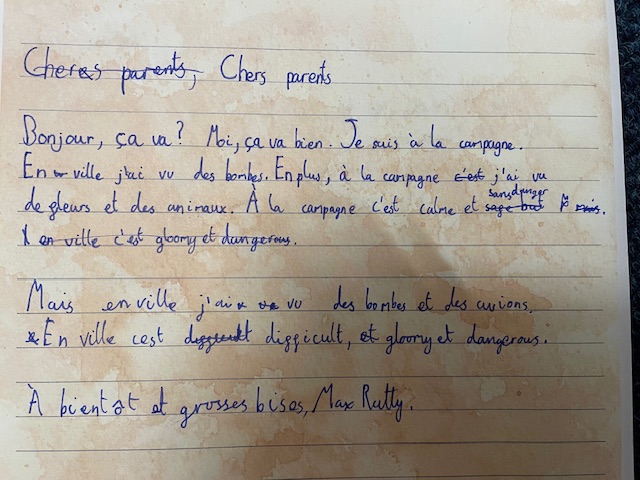 Cheres parents, Chers parents
Bonjour, ça va? Moi, ça va bien. Je suis à la campagne.
En ville j'ai vu des bombes. En plus, à la campagne c'est j'ai vu
sans danger
de fleurs et des animaux. À la campagne c'est calme et sage but mais.
en ville c'est gloomy et dangerous.
Mais en ville j'ai vu des bombes et des avions.
En ville cest difficult, et gloomy et dangerous.
À bientôt et grosses bises, Max Rutty.